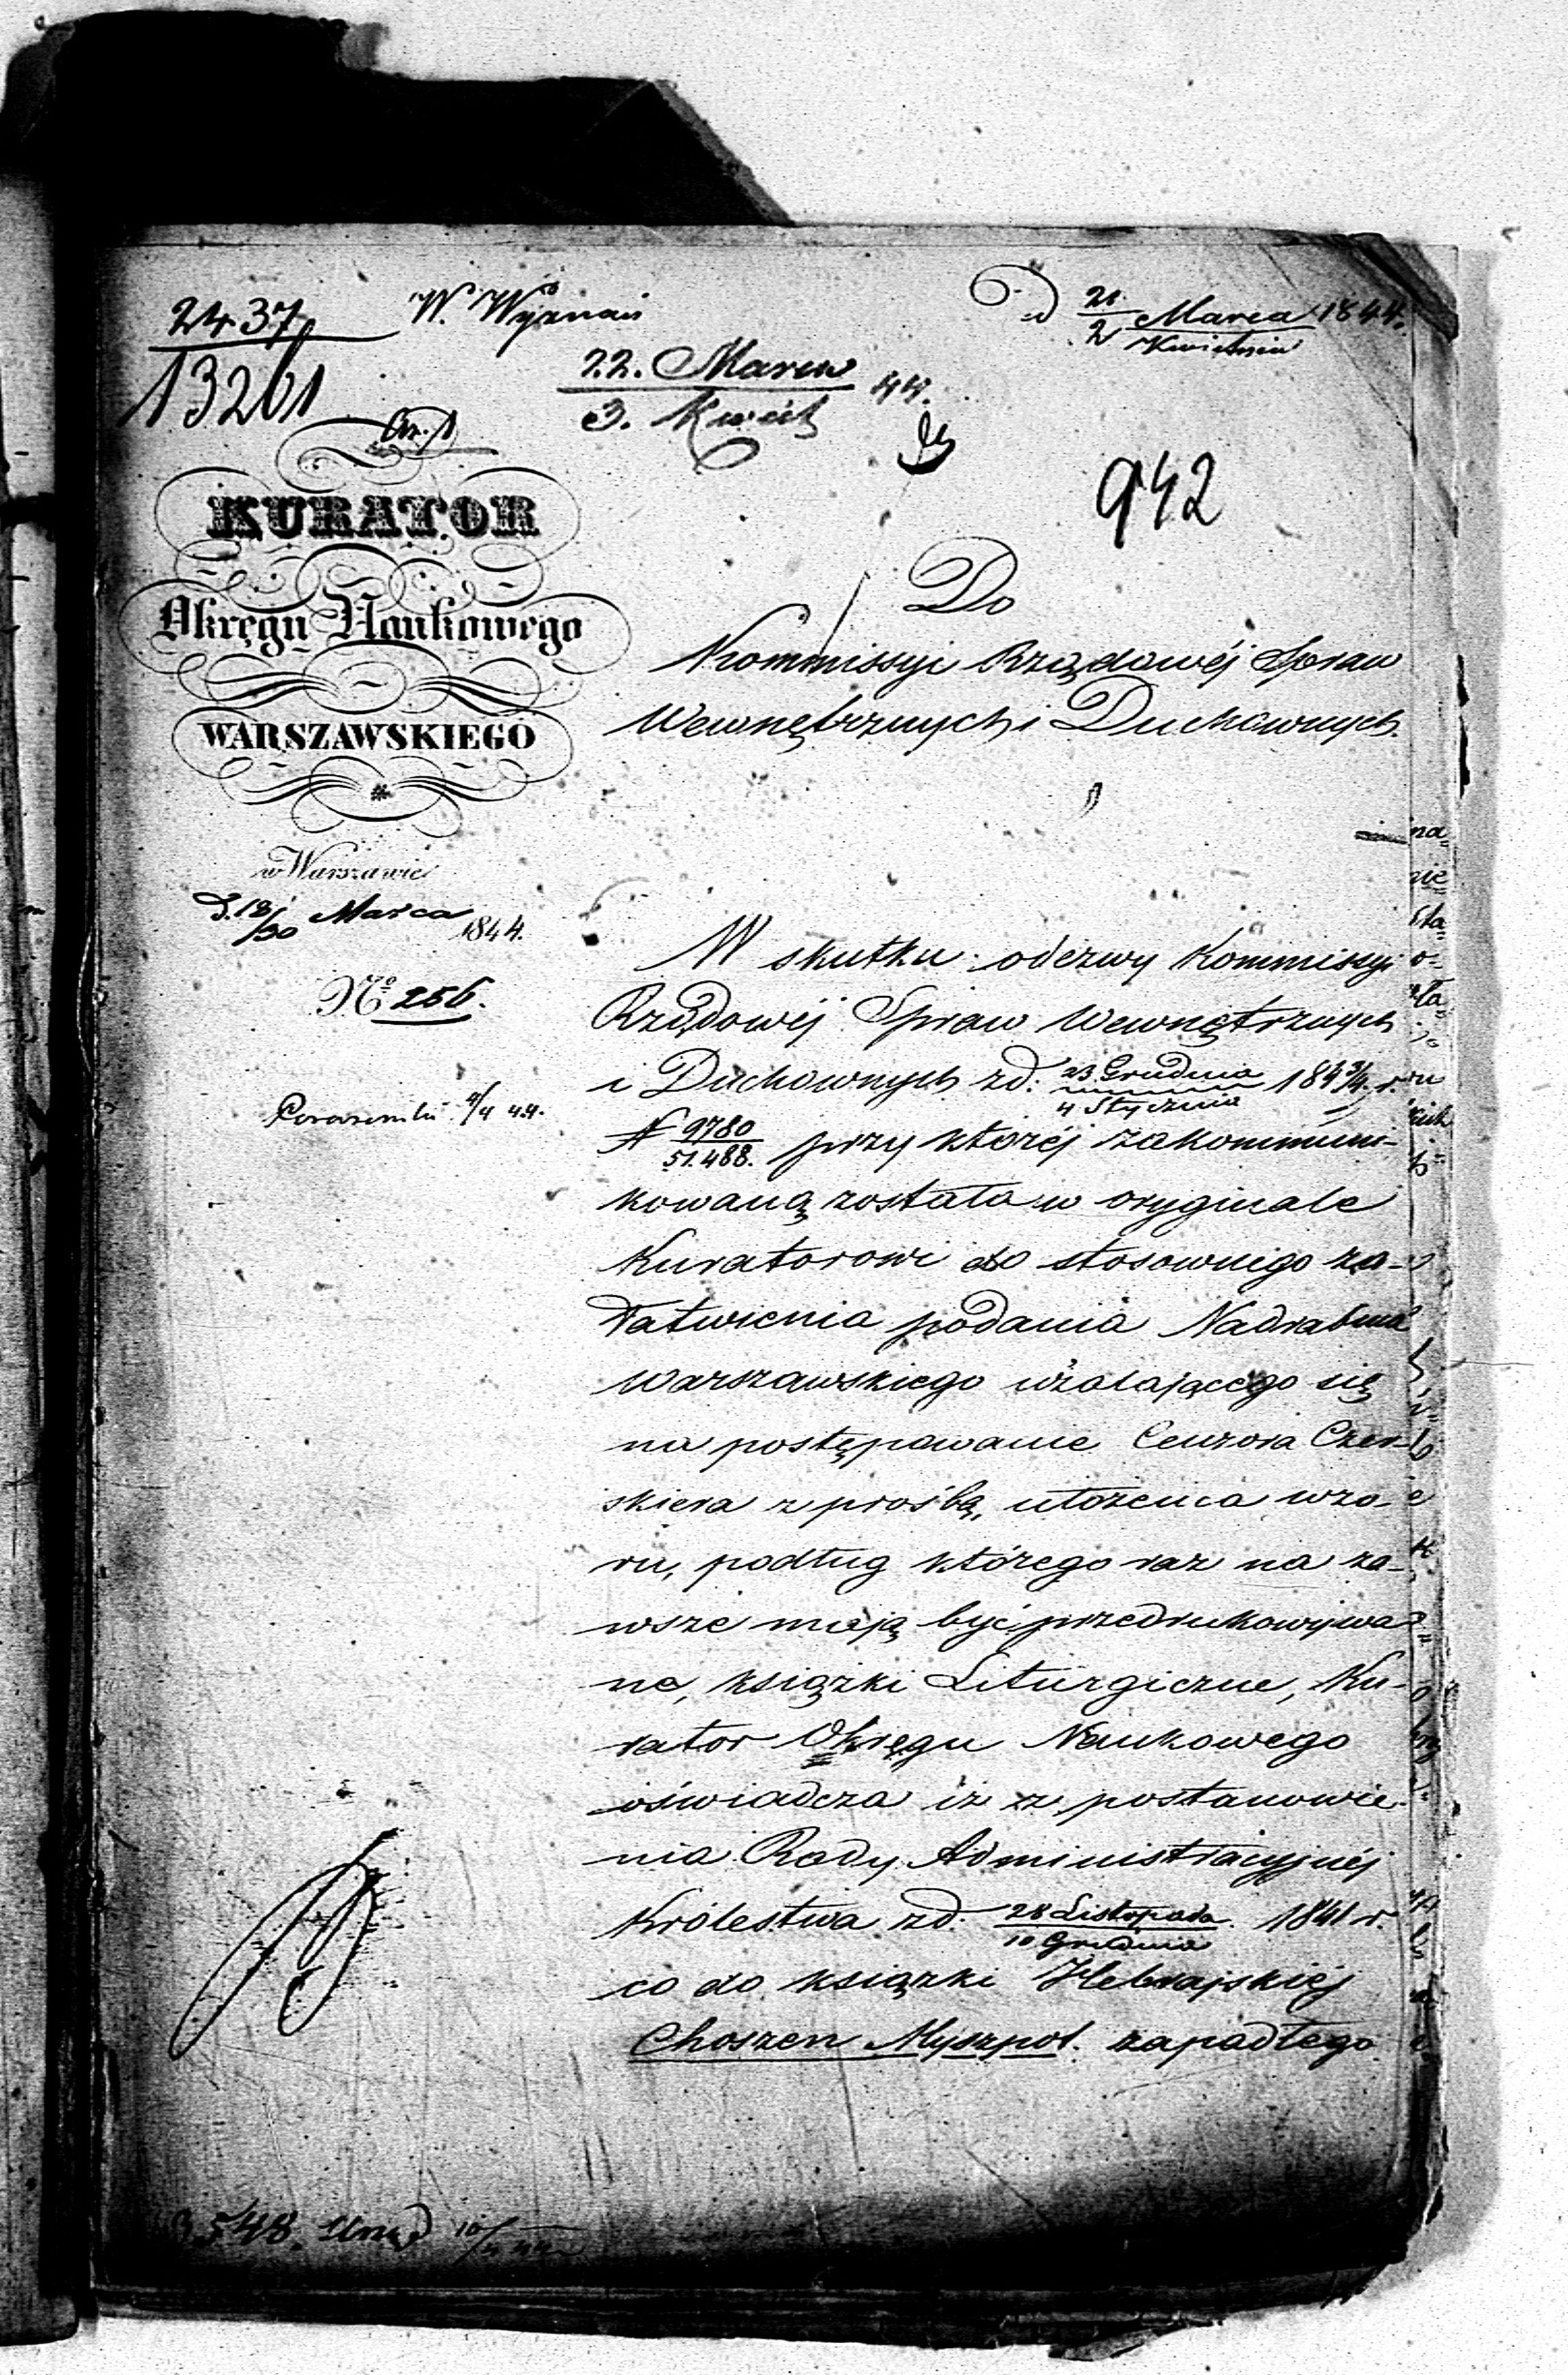 2437
13261
W. Wyznań
22. Marca
3. Kwiet 44.
D 21 Marca 1844.
2 Kwietnia
942
KURATOR
Okręgu Naukowego
WARSZAWSKIEGO
w Warszawie
D. 18/30 Marca 1844.
Nº 256.
4/4 44.
Do
Kommissyi Rządowéj Spraw
Wewnętrznych i Duchownych.
W skutku odezwy Kommissyi
Rządowéj Spraw Wewnętrznych
i Duchownych z d: 23 Grudnia / 4 Stycznia 1843/4 r.
N 9780 / 51.488. przy któréj zakommuni-
kowaną została w oryginale
Kuratorowi do stosownego za-
łatwienia podania Nadrabina
Warszawskiego użalającego się
na postępowanie Cenzora Czer-
skiera z prośbą, ułożenia wzo-
ru, podług którego raz na za-
wsze mają być przedrukowywa
ne, książki Liturgiczne, Ku-
rator Okręgu Naukowego
oświadcza iż z postanowie-
nia Rady Administracyjnéj
Królestwa z d: 28 Listopada / 10 Grudnia 1841 r.
co do książki Hebrajskiéj
Choszen Myszpot. zapadłego
3548. 10/4 44